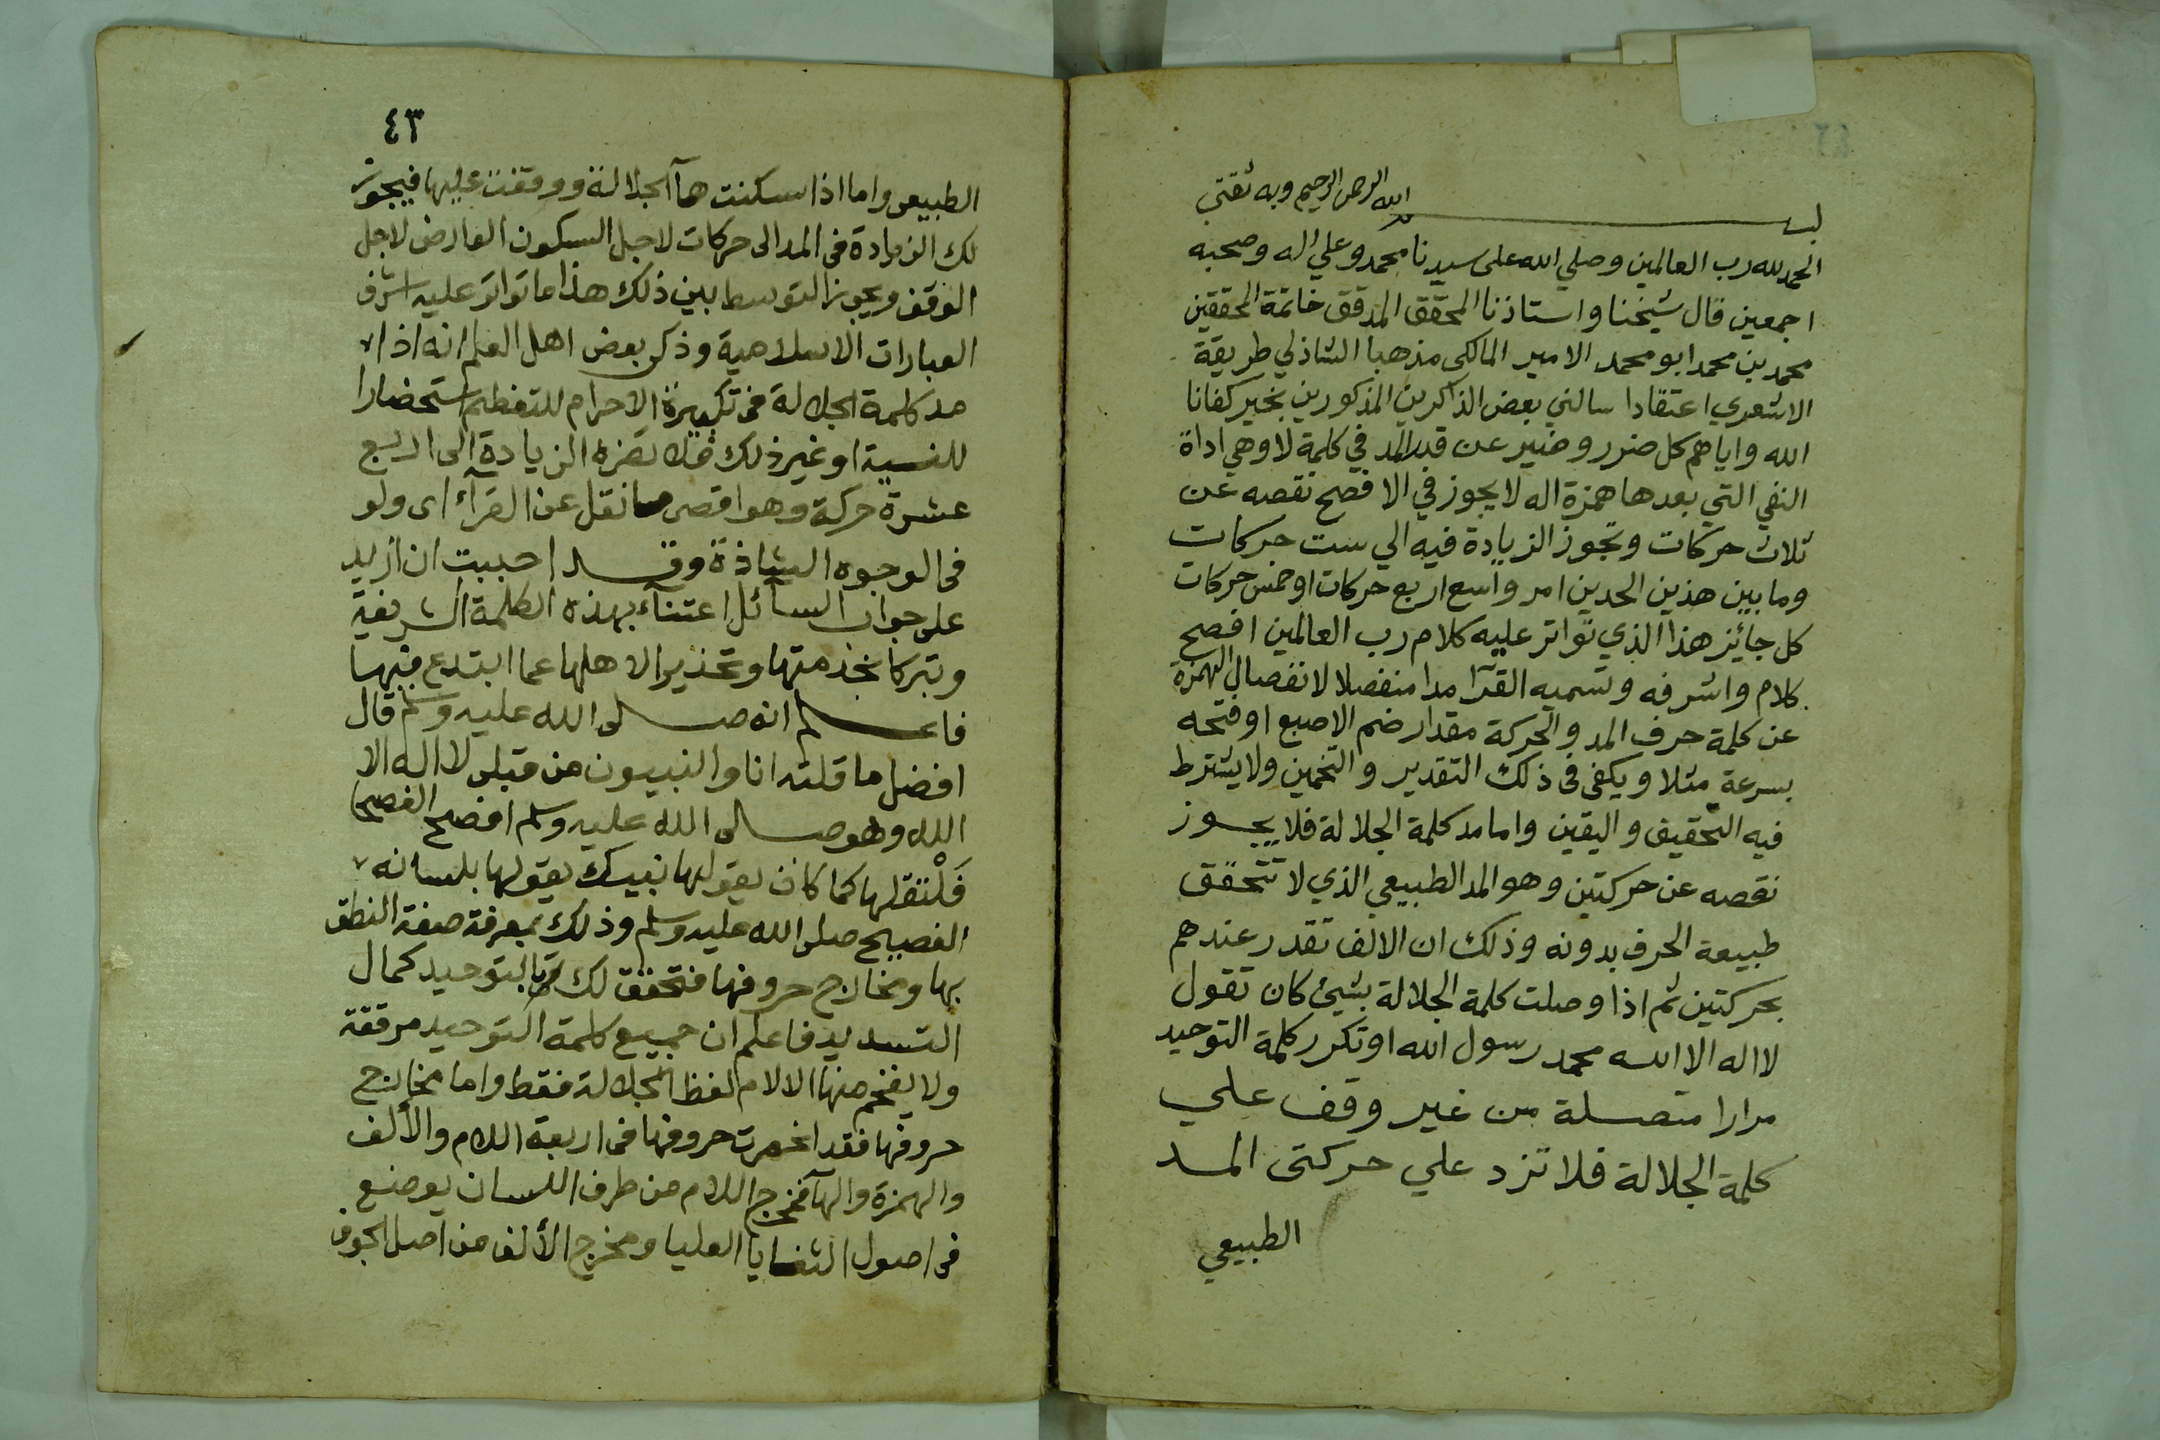 بسم الله الرحمن الرحيم وبه ثقتي
الحمد لله رب العالمين وصلي الله على سيدنا محمد وعلي اله وصحبه
اجمعين قال شيخنا واستاذنا المحقق المدقق خاتمة المحققين
محمد بن محمد ابو محمد الامير المالكي مذهبا الشاذلي طريقة
الاشعري اعتقادا سالني بعض الذاكرين المذكورين بخير كفانا
الله واياهم كل ضرر وضير عن قدر المد في كلمة لا وهي اداة
النفي التي بعدها همزة اله لا يجوز في الافصح نقصه عن
ثلاث حركات وتجوز الزيادة فيه الي ست حركات
وما بين هذين الحدين امر واسع اربع حركات او خمس حركات
كل جائز هذا الذي تواتر عليه كلام رب العالمين افصح
كلام واشرفه وتسميه القرآ مدا منفصلا لانفصال الهمزة
عن كلمة حرف المد والحركة مقدار ضم الاصبع او فتحه
بسرعة مثلا ويكفي في ذلك التقدير والتخمين ولا يشترط
فيه التحقيق واليقين واما مد كلمة الجلالة فلا يجوز
نقصه عن حركتين وهو المد الطبيعي الذي لا تتحقق
طبيعة الحرف بدونه وذلك ان الالف تقدر عندهم
بحركتين ثم اذا وصلت كلمة الجلالة بشيئ كان تقول
لا اله الا الله محمد رسول الله او تكرر كلمة التوحيد
مرارا متصلة من غير وقف علي
كلمة الجلالة فلا تزد علي حركتى المد
الطبيعي
٤٣
الطبيعى واما اذا سكنت هآ الجلالة ووقفت عليها فيجوز
لك الزيادة فى المد الى حركات لاجل السكون العارض لاجل
الوقف ويجوز التوسط بين ذلك هذا ما تواتر عليه اشرف
العبارات الاسلامية وذكر بعض اهل العلم انه اذا
مد كلمة الجلالة فى تكبيرة الاحرام للتعظيم استحضارا
للنسية او غير ذلك فلا تضره الزيادة الى اربع
عشرة حركة وهو اقصى ما نقل عن القرآء اى ولو
فى الوجوه الشاذة وقد احببت ان ازيد
على جواب السآئل اعتنآء بهذه الكلمة الشريفة
وتبركا بخدمتها وتحذيرا لاهلها عما ابتدع فيها
فاعلم انه صلى الله عليه وسلم قال
افضل ما قلته انا والنبيون من قبلى لا اله الا
الله وهو صلى الله عليه وسلم افصح الفصحا
فَلْتقلها كما كان يقولها نبيك يقولها بلسانه
الفصيح صلى الله عليه وسلم وذلك بمعرفة صفة النطق
بها ومخارج حروفها فتحقق لك بالتوحيد كمال
التسديد فاعلم ان جميع كلمة التوحيد مرققة
ولا يفخم منها الا لام لفظ الجلالة فقط واما مخارج
حروفها فقد انحصرت حروفها فى اربعة اللام والألف
والهمزة والهآ فمخرج اللام من طرف اللسان يوضع
فى اصول الثنايا العليا ومخرج الألف من اصل الجوف